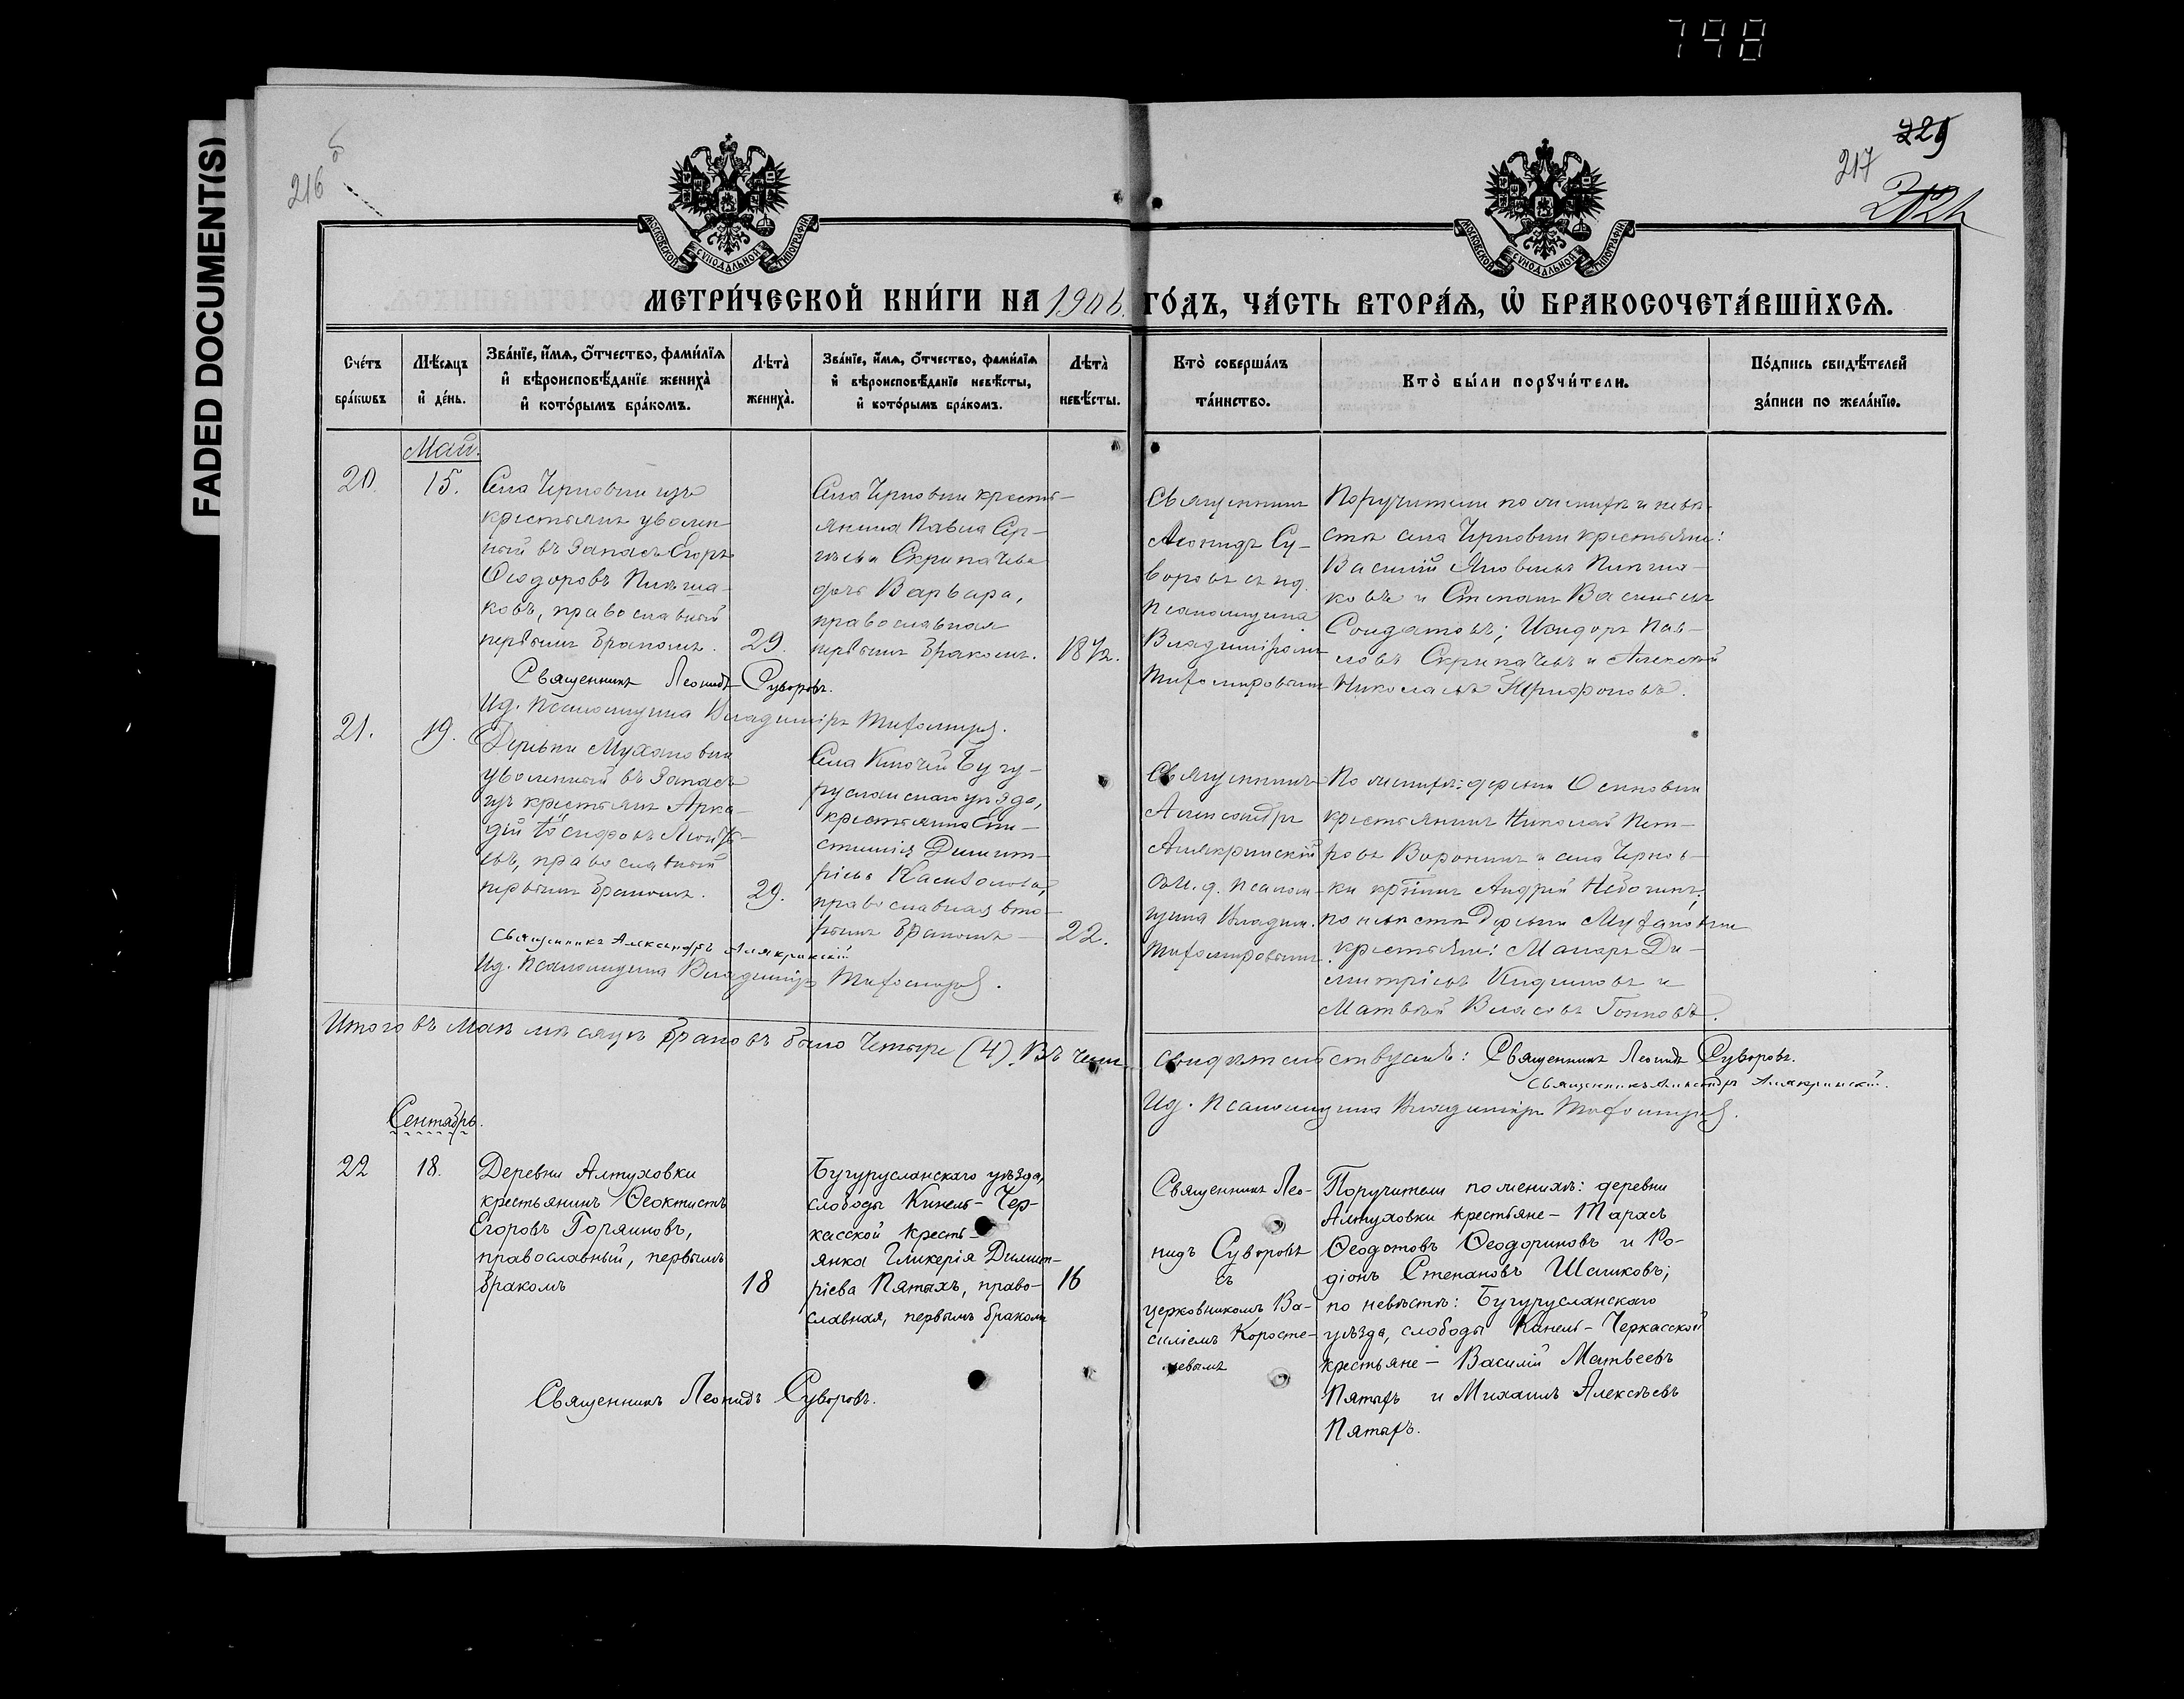 798
FADED DOCUMENT(S)
216 об
229
217
МОСКОВСКОЙ СѴНОДАЛЬНОЙ ТИПОГРАФІИ
МОСКОВСКОЙ СѴНОДАЛЬНОЙ ТИПОГРАФІИ
МЕТРИ́ЧЕСКОЙ КНИ́ГИ НА 1906 ГО́ДЪ, ЧА́СТЬ ВТОРА́Я, Ѡ҆ БРАКОСОЧЕТА́ВШИХСЯ.
Сче́тъ бра́кѡвъ
Мѣ́сяцъ и҆ де́нь.
Зва́нїе, и҆́мя, ѻ҆́тчество, фами́лїя
и҆ вѣроисповѣ́данїе жениха̀
и҆ кото́рымъ бра́комъ.
Лѣта̀ жениха̀.
Зва́нїе, и҆́мя, ѻ҆́тчество, фами́лїя
и҆ вѣроисповѣ́данїе невѣ́сты,
и҆ кото́рымъ бра́комъ.
Лѣта̀ невѣ́сты.
Кто̀ соверша́лъ та́инство.
Кто̀ бы́ли порꙋчи́тели.
По́дпись свидѣ́телей за́писи по жела́нїю.
Май.
20.
15.
Села Черновки изъ
крестьянъ уволен-
ный въ запасъ Егоръ
Ѳеодоровъ
ковъ, православный
первымъ бракомъ.
29.
Села Черновки кресть-
янина Павла Сер-
гѣева Скрипачева
дочь Варвара,
православная
первымъ бракомъ.
18 1/2.
Священникъ
Леонидъ Су-
воровъ съ и.д.
псаломщика
Владиміромъ
Тихомировымъ
Поручители по женихѣ и невѣ-
стѣ села Черновки крестьяне:
Василій Яковлевъ
ковъ и Степанъ Васильевъ
Солдатовъ; Исидоръ Пав-
ловъ Скрипачевъ и Алексѣй
Николаевъ Трифоновъ.
Священникъ Леонидъ Суворовъ.
И.д. псаломщика Владиміръ Тихомировъ.
21.
19.
Деревни Мухановки
уволенный въ запасъ
изъ крестьянъ Арка-
дій Іосифовъ
евъ, православный
первымъ бракомъ.
29.
Села Ключей Бугу-
русланскаго уѣзда,
крестьянка
Димит-
ріева
православная вто-
рымъ бракомъ
22.
Священникъ
Александръ
Алякринскій
съ и.д. псалом-
щика Владим.
Тихомировымъ
По женихѣ: деревни Осиновки
крестьянинъ Николай Пет-
ровъ Воронинъ и села Чернов-
ки кр-нинъ Андрей
по невѣстѣ деревни Мухановки
крестьяне: Макаръ Ди-
митріевъ и
Матвѣй Власовъ
Священникъ Александръ Алякринскій
И.д. псаломщика Владиміръ Тихомировъ.
Итого въ маѣ мѣсяцѣ браковъ было четыре (4). Въ чемъ
свидѣтельствуемъ: Священникъ Леонидъ Суворовъ.
Священникъ Александръ Алякринскій.
И.д. псаломщика Владиміръ Тихомировъ.
Сентябрь.
22
18.
Деревни Алтуховки
крестьянинъ Ѳеоктистъ
Егоровъ Горяиновъ,
православный, первымъ
бракомъ
18
Бугурусланскаго уѣзда,
слободы Кинель-Чер-
касской кресть-
янка Гликерія Димит-
ріева Пятахъ, право-
славная, первымъ бракомъ
16
Священникъ Лео-
нидъ Суворовъ
съ
церковникомъ Ва-
силіемъ Коросте-
левымъ
Поручители по женихѣ: деревни
Алтуховки крестьяне - Тарасъ
Ѳеодотовъ Ѳеодориновъ и Ро-
діонъ Степановъ Шашковъ;
по невѣстѣ: Бугурусланскаго
уѣзда, слободы Кинель-Черкасской
крестьяне - Василій Матвеевъ
Пятахъ и Михаилъ Алексѣевъ
Пятахъ.
Священникъ Леонидъ Суворовъ.